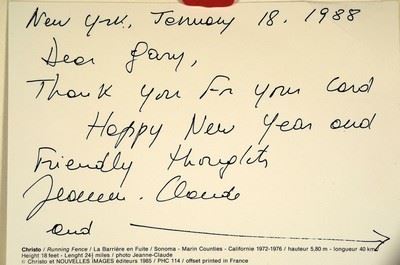 New York, February 18. 1988
Dear Gary,
Thank you For your Card
Happy New Year and
Friendly thoughts
Jeanne-Claude
and
Christo / Running Fence / La Barrière en Fuite / Sonoma - Marin Counties - Californie 1972-1976 / hauteur 5,80 m - longueur 40 km
Height 18 feet - Lenght 24½ miles / photo Jeanne-Claude
© Christo et NOUVELLES IMAGES éditeurs 1985 / PHC 114 / offset printed in France